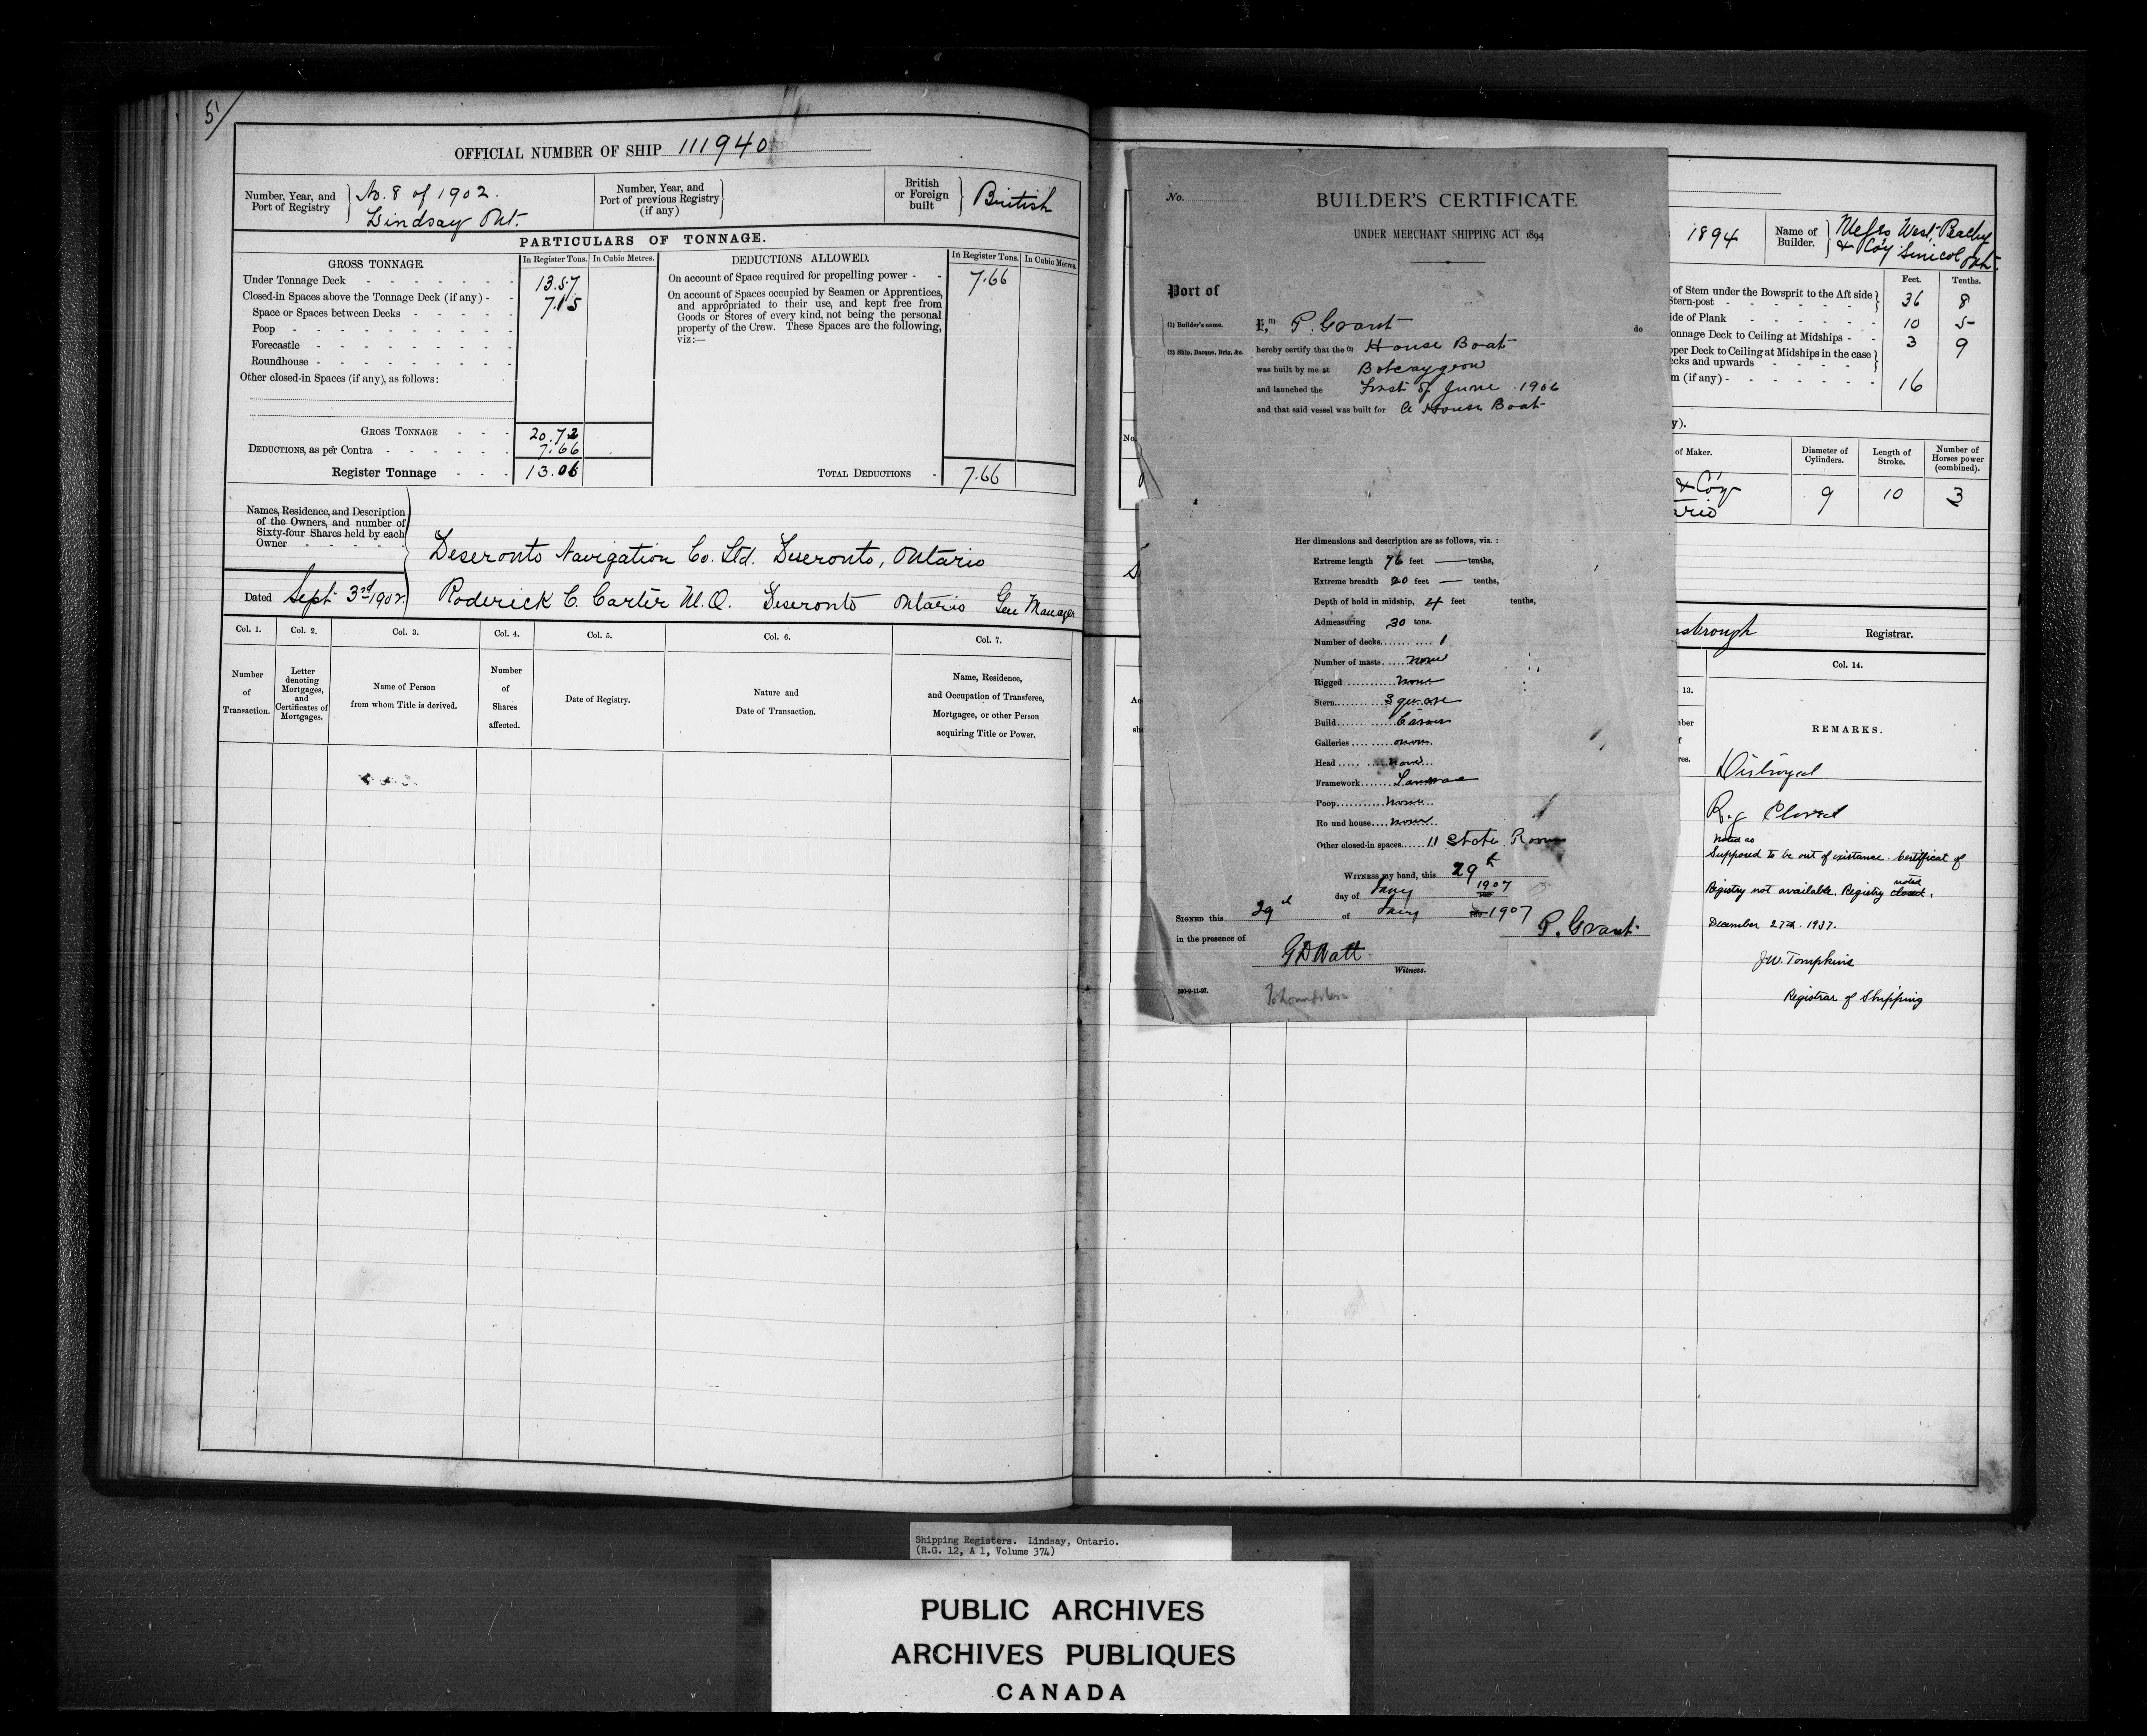 5
OFFICIAL NUMBER OF SHIP 111940
Number, Year, and Port of Registry } No. 8 of 1902. Lindsay Ont.
Number, Year, and Port of previous Registry (if any) }
British or Foreign built } British
PARTICULARS OF TONNAGE.
GROSS TONNAGE. In Register Tons. In Cubic Metres.
Under Tonnage Deck - - - - - - 13.57
Closed-in Spaces above the Tonnage Deck (if any) - - 7.15
Space or Spaces between Decks - - - - -
Poop - - - - - - - - -
Forecastle - - - - - - - -
Roundhouse - - - - - - - -
Other closed-in Spaces (if any), as follows:
GROSS TONNAGE - - - 20.72
DEDUCTIONS, as per Contra - - - - - - 7.66
Register Tonnage - - - 13.06
DEDUCTIONS ALLOWED. In Register Tons. In Cubic Metres.
On account of Space required for propelling power - - 7.66
On account of Spaces occupied by Seamen or Apprentices,
and appropriated to their use, and kept free from
Goods or Stores of every kind, not being the personal
property of the Crew. These Spaces are the following,
viz:—
TOTAL DEDUCTIONS - 7.66
Names, Residence, and Description
of the Owners, and number of
Sixty-four Shares held by each
Owner - - - - -
Deseronto Navigation Co. Ltd. Deseronto, Ontario
Dated Sept 3rd 1902. Roderick C. Carter M.O. Deseronto Ontario Gen Manager
Col. 1. Col. 2. Col. 3. Col. 4. Col. 5. Col. 6. Col. 7.
Number of Transaction.
Letter denoting Mortgages, and Certificates of Mortgages.
Name of Person from whom Title is derived.
Number of Shares affected.
Date of Registry.
Nature and Date of Transaction.
Name, Residence, and Occupation of Transferee, Mortgagee, or other Person acquiring Title or Power.
No.
BUILDER'S CERTIFICATE
UNDER MERCHANT SHIPPING ACT 1894
Port of
(1) Builder's name. I, (1) P. Grant do
(2) Ship, Barque, Brig, &c. hereby certify that the (2) House Boat
was built by me at Bobcaygeon
and launched the First of June 1906
and that said vessel was built for a House Boat
Her dimensions and description are as follows, viz. :
Extreme length 76 feet — tenths,
Extreme breadth 20 feet — tenths,
Depth of hold in midship, 4 feet tenths,
Admeasuring 30 tons.
Number of decks 1
Number of masts none
Rigged none
Stern square
Build
Galleries none
Head none
Framework
Poop none
Round house none
Other closed-in spaces 11 State Rooms
WITNESS my hand, this 29th
day of Jany 1907
SIGNED this 29th of Jany 1907
P. Grant
in the presence of
G D Watt
Witness.
500-9-11-97.
1894
Name of Builder. } Messrs West, Peachy & Coy Simcoe Ont.
Feet. Tenths.
of Stem under the Bowsprit to the Aft side
Stern-post - - - - - - 36 8
ide of Plank - - - - - - 10 5
onnage Deck to Ceiling at Midships - - 3 9
pper Deck to Ceiling at Midships in the case
ecks and upwards - - - -
m (if any) - - - - - - 16
y).
of Maker. Diameter of Cylinders. Length of Stroke. Number of Horses power (combined).
& Coy
ario 9 10 3
sbrough Registrar.
13. Col. 14.
REMARKS.
Distroyed
Rg Closed
Noted as
Supposed to be out of existance. Certificat of
Registry not available. Registry closed noted.
December 27th. 1937.
J.W. Tompkins
Registrar of Shipping
Shipping Registers. Lindsay, Ontario.
(R.G. 12, A 1, Volume 374)
PUBLIC ARCHIVES
ARCHIVES PUBLIQUES
CANADA